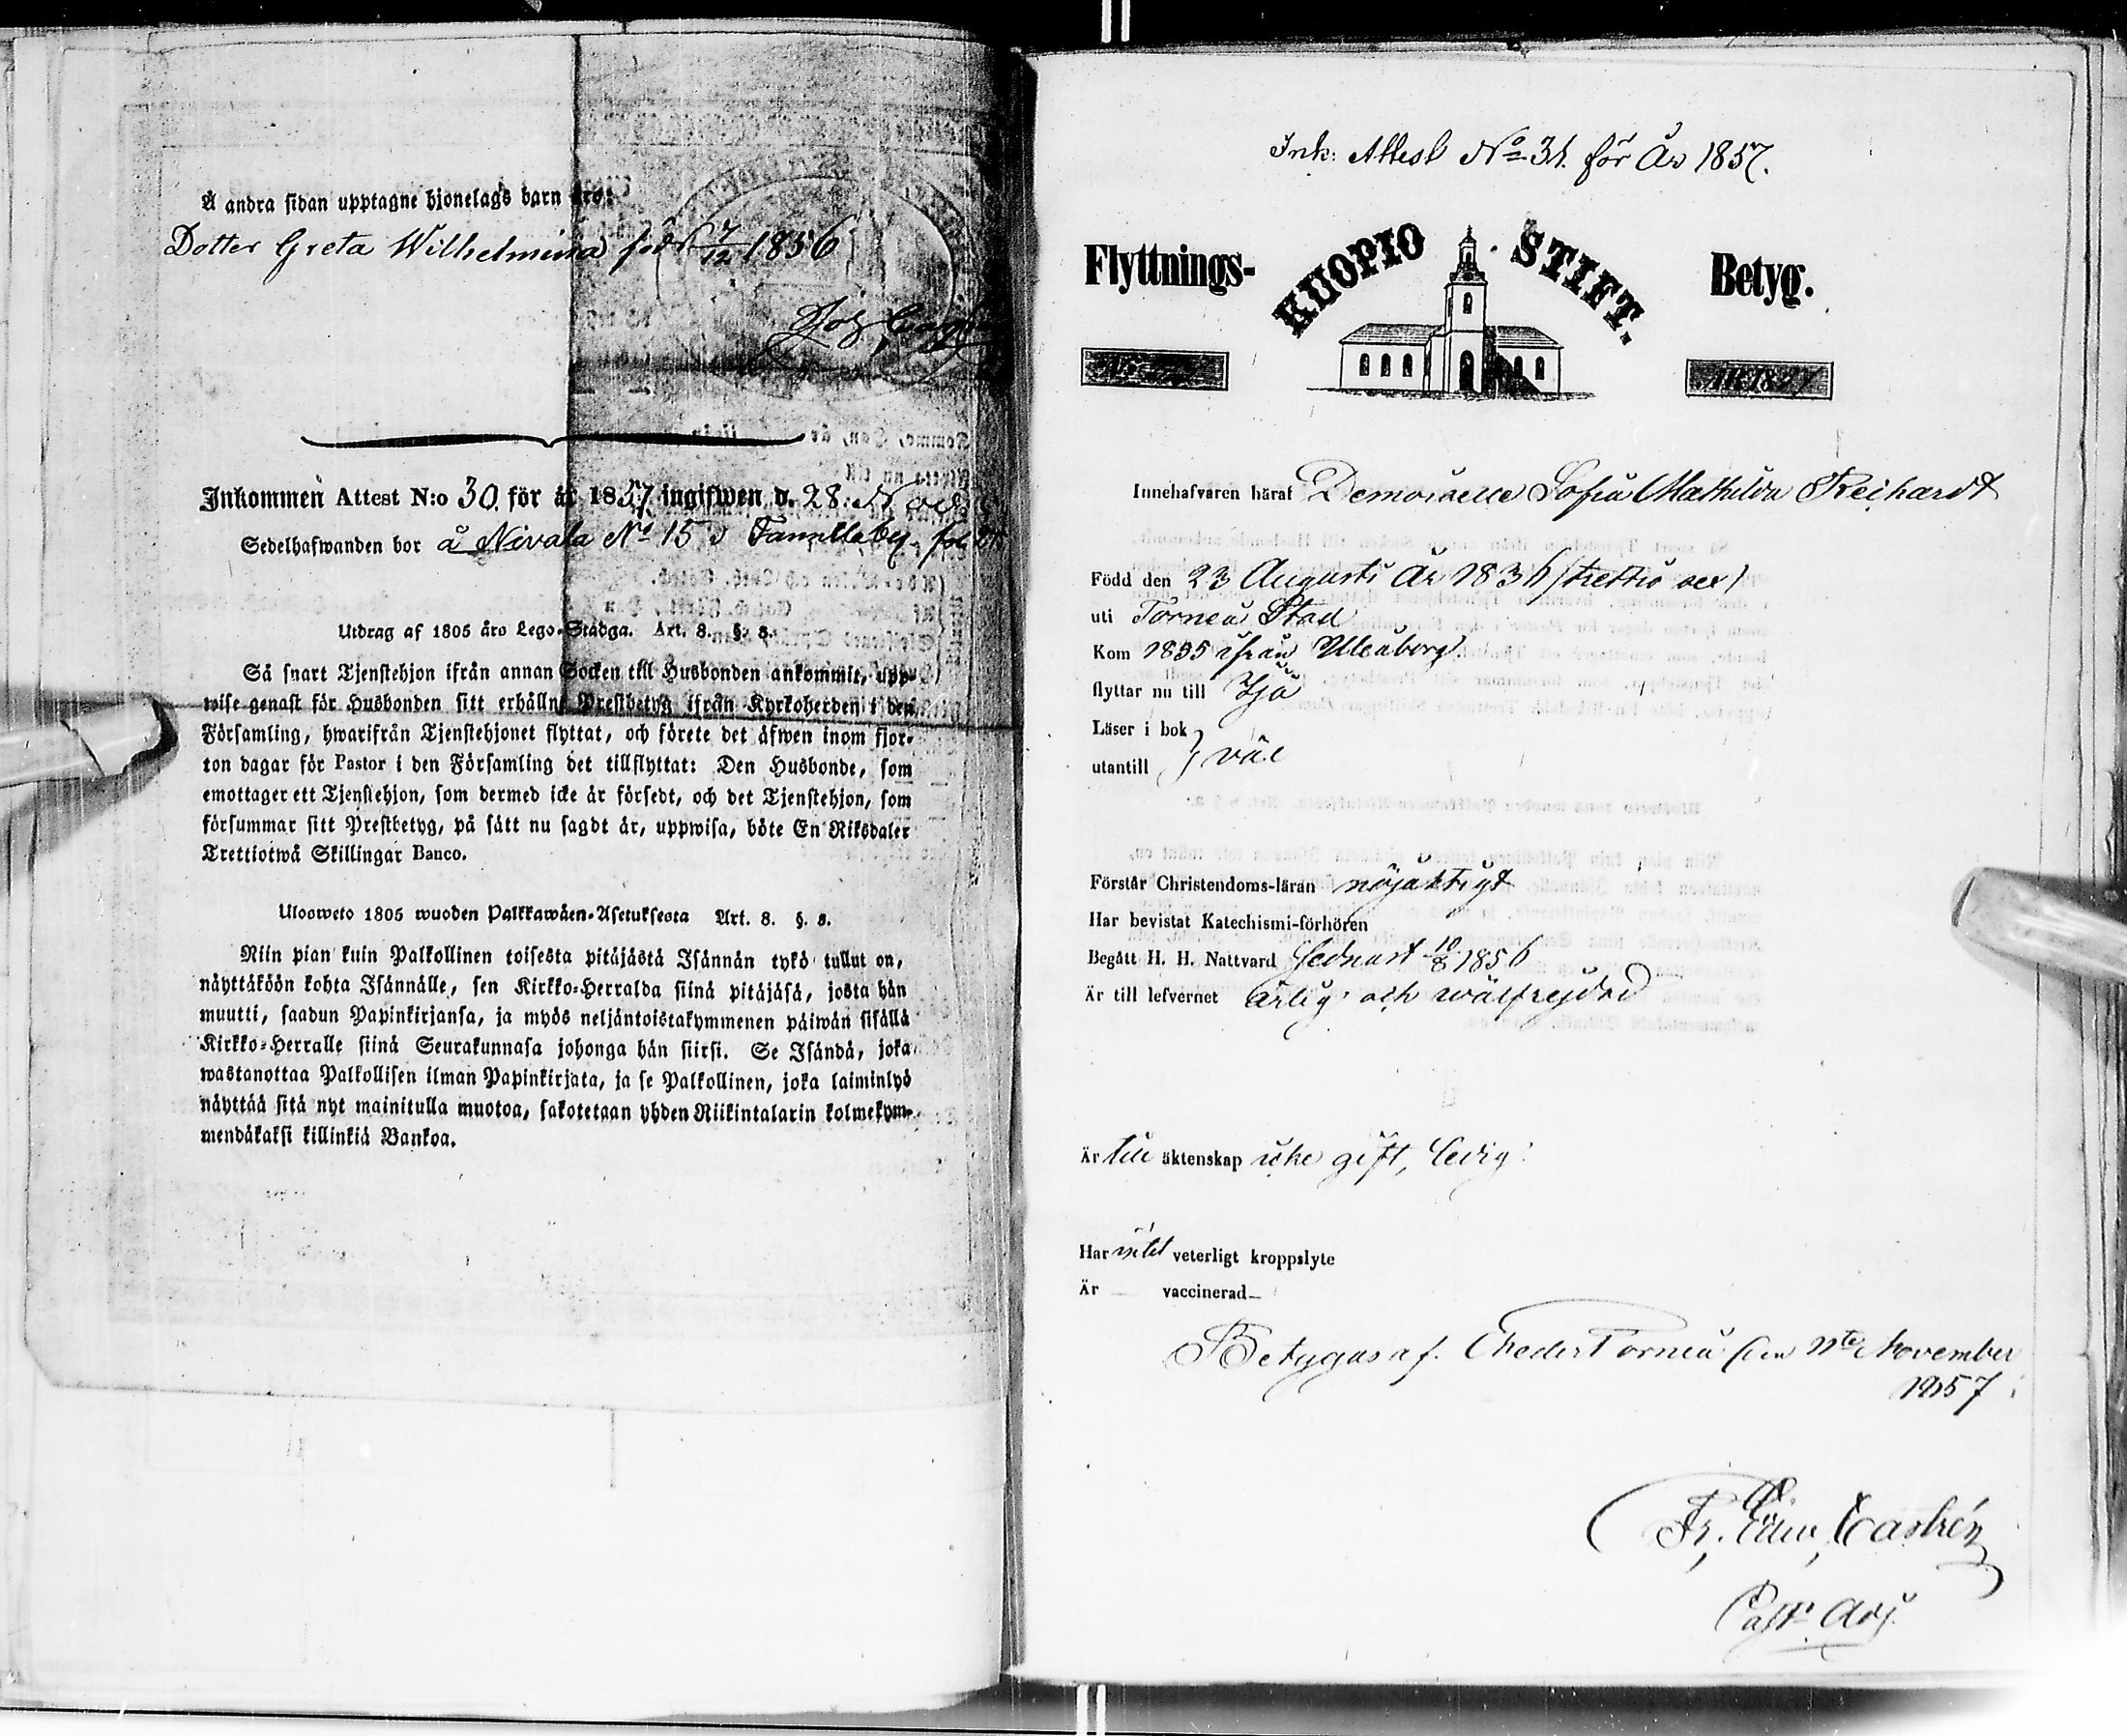 Å andra sidan upptagne hjonelags barn äro:
Dotter Greta Wilhelmina född 7/12 1856
Inkommen Attest N:o 30. för år 1857 ingifwen d. 28.
Sedelhafwanden bor å Nivala No 15
Utdrag af 1805 års Lego-Stadga. Art. 8. §. 8.
Så snart Tjenstehjon ifrån annan Socken till Husbonden ankommit, upp-
wise genast för Husbonden sitt erhållna Prestbetyg ifrån Kyrkoherden i den
Församling, hwarifrån Tjenstehjonet flyttat, och förete det äfwen inom fjor-
ton dagar för Pastor i den Församling det tillflyttat: Den Husbonde, som
emottager ett Tjenstehjon, som dermed icke är försedt, och det Tjenstehjon, som
försummar sitt Prestbetyg, på sätt nu sagdt är, uppwisa, böte En Riksdaler
Trettiotwå Skillingar Banco.
Ulosweto 1805 wuoden Palkkawäen-Asetuksesta Art. 8. §. 8.
Niin pian kuin Palkollinen toisesta pitäjästä Isännän tykö tullut on,
näyttäköön kohta Isännälle, sen Kirkko-Herralda siinä pitäjäsä, josta hän
muutti, saadun Papinkirjansa, ja myös neljäntoistakymmenen päiwän sisällä
Kirkko-Herralle siinä Seurakunnasa johonga hän siirsi. Se Isändä, joka
wastanottaa Palkollisen ilman Papinkirjata, ja se Palkollinen, joka laiminlyö
näyttää sitä nyt mainitulla muotoa, sakotetaan yhden Riikintalarin kolmekym-
mendäkaksi killinkiä Bankoa.
Ink: Attest No 31. för År 1857.
Flyttnings- KUOPIO STIFT. Betyg.
Innehafvaren häraf Demoiselle Sofia Mathilda Reihardt
Född den 23 Augusti År 1836 (trettio sex)
uti Torneå Stad
Kom 1855 ifrån Uleåborg.
flyttar nu till Ijo
Läser i bok } väl
utantill
Förstår Christendoms-läran nöjaktigt
Har bevistat Katechismi-förhören
Begått H. H. Nattvard sednast 10/8 1856
Är till lefvernet ärlig och wälfrejdad
Är till äktenskap icke gift, ledig.
Har intet veterligt kroppslyte
Är vaccinerad
Betygas af. Neder Torneå den November
1857
Castrén
Past. Adj.